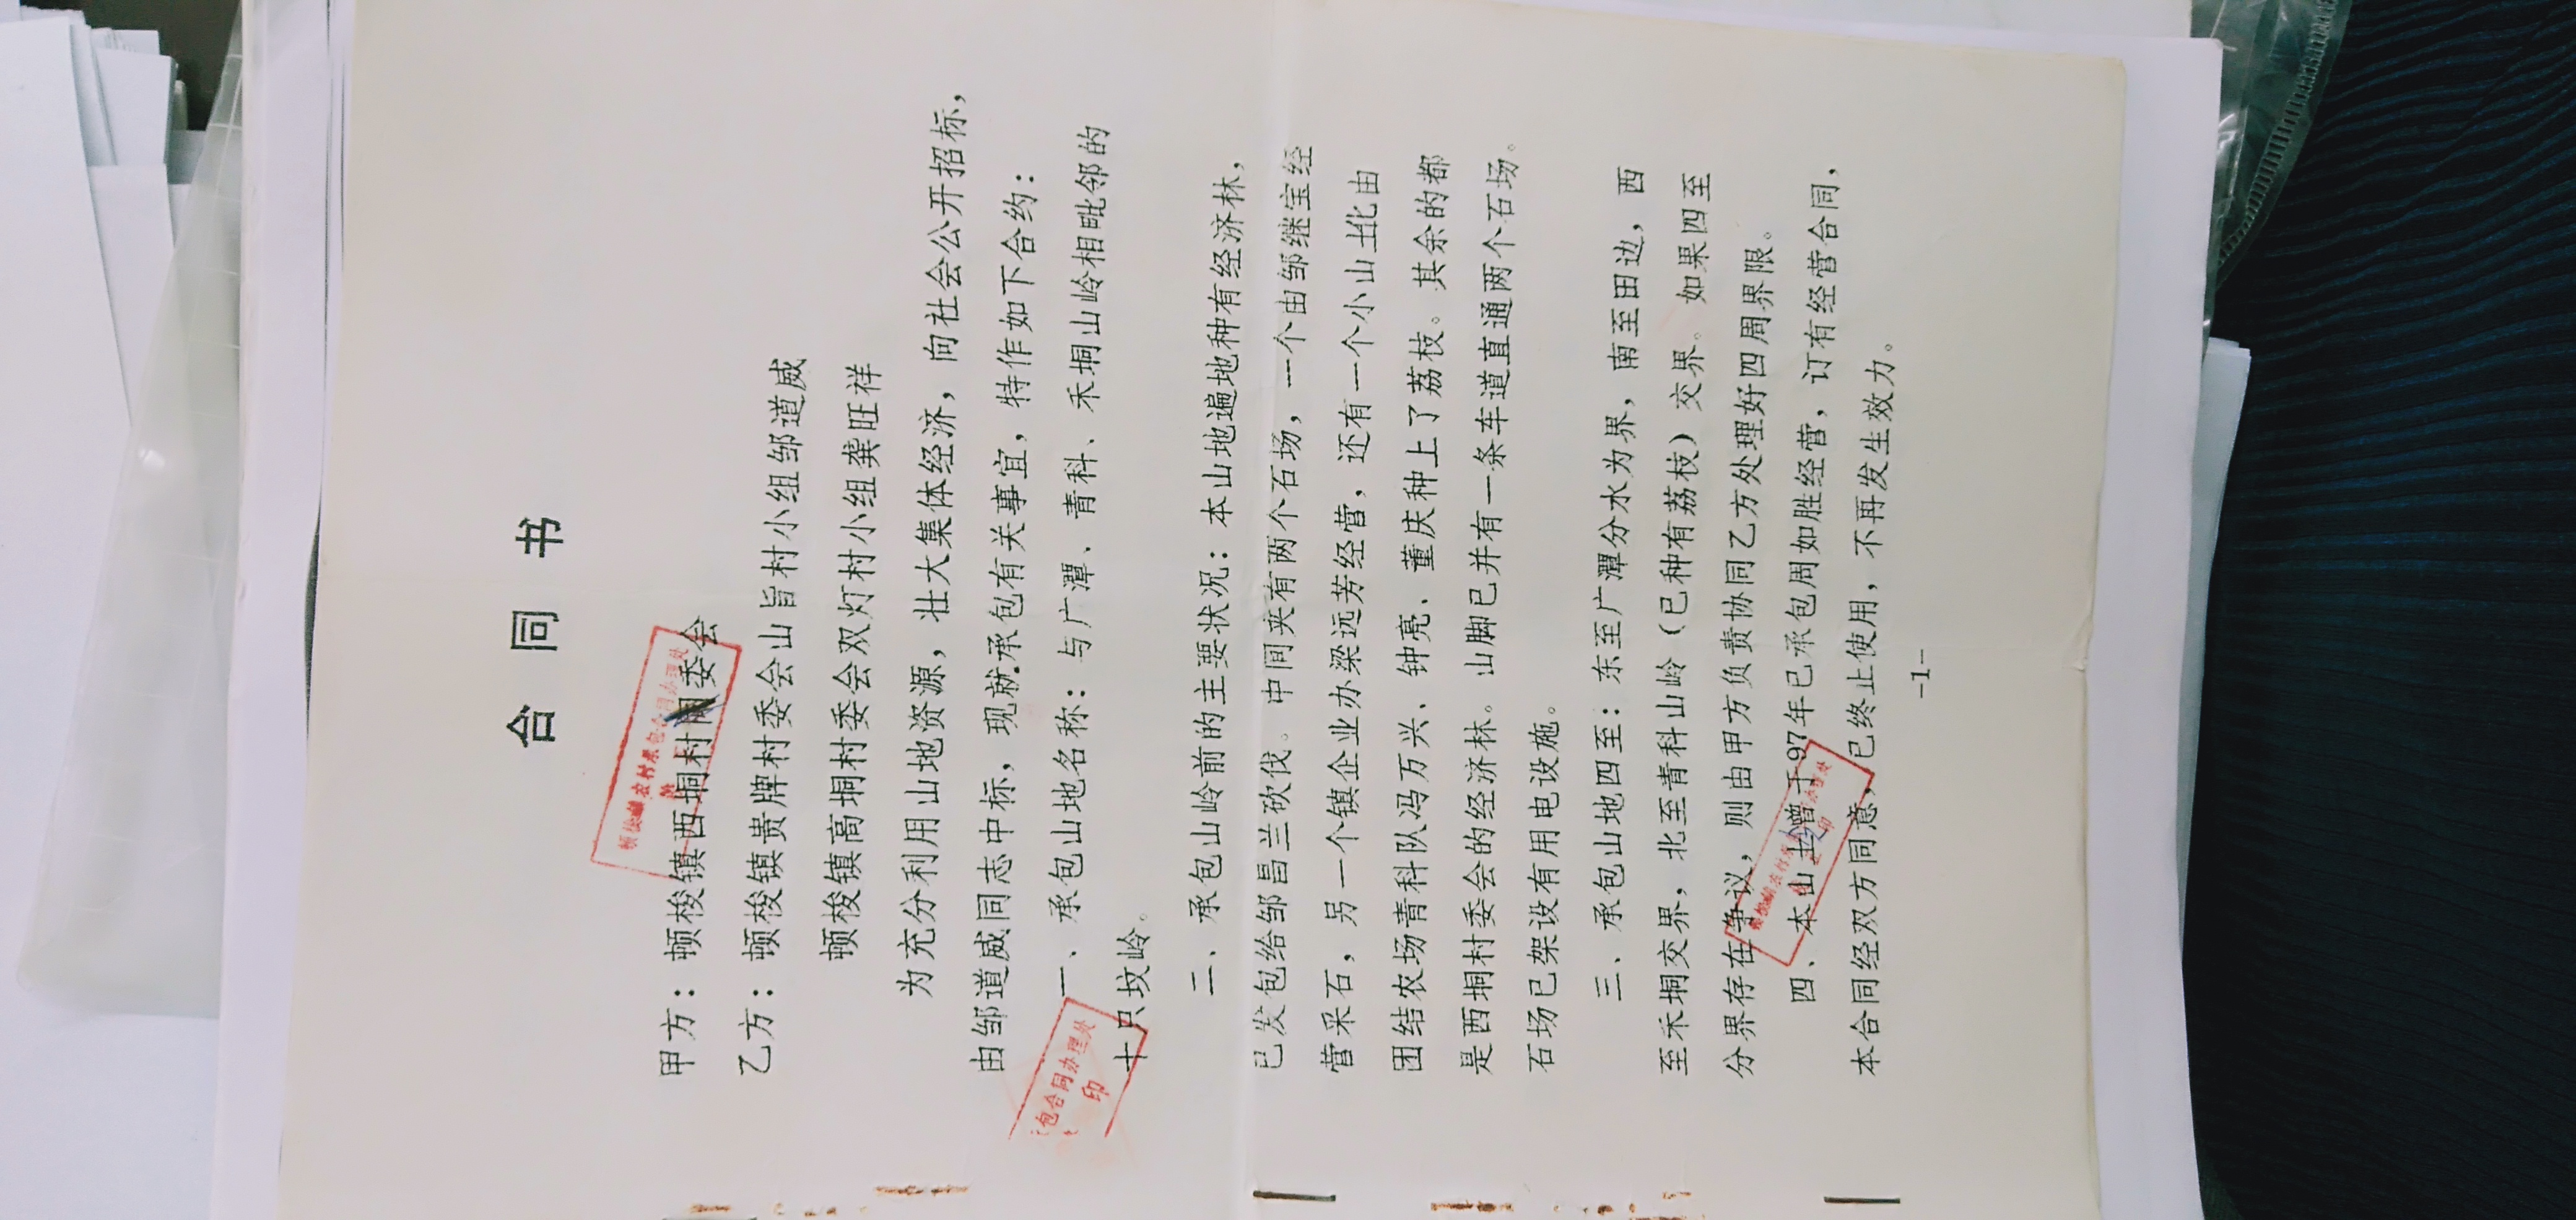 合同书
甲方：顿梭镇西垌村委会
乙方：顿梭镇贵牌村委会山旨村小组邹道威
顿梭镇高垌村委会双灯村小组龚旺祥
为充分利用山地资源，壮大集体经济，向社会公开招标，
由邹道威同志中标，现就承包有关事宜，特作如下合约：
一、承包山地名称：与广潭、青科、禾垌山岭相毗邻的
十只坟岭。
二、承包山岭前的主要状况：本山地遍地种有经济林，
已发包给邹昌兰砍伐。中间夹有两个石场，一个由邹继宝经
营采石，另一个镇企业办梁远芳经营，还有一个小山北由
团结农场青科队冯万兴、钟亮、董庆种上了荔枝。其余的都
是西垌村委会的经济林。山脚已并有一条车道直通两个石场。
石场已架设有用电设施。
三、承包山地四至：东至广潭分水为界，南至田边，西
至禾垌交界，北至青科山岭（已种有荔枝）交界。如果四至
分界存在争议，则由甲方负责协同乙方处理好四周界限。
四、本山曾于97年已承包周如胜经营，订有经营合同，
本合同经双方同意，已终止使用，不再发生效力。
-1-
包合同办理处
印